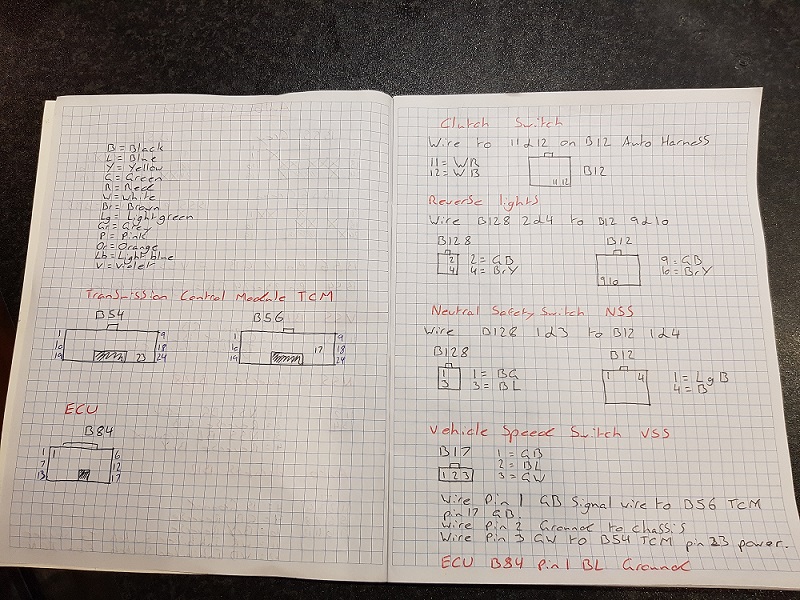 B = Black
L = Blue
Y = Yellow
G = Green
R = Red
W = White
Br = Brown
Lg = Light green
Gr = Grey
P = Pink
Or = Orange
Lb = Light blue
V = Violet
Transmission Control Module TCM
B54 B56
1 9 1 9
10 18 10 17 18
19 23 24 19 24
ECU
B84
1 1 6
7 12
13 17
Clutch Switch
Wire to 11 & 12 on B12 Auto Harness
11 = WR
12 = WB
11 12
B12
Reverse lights
Wire B128 2&4 to B12 9&10
B128 B12
2 2 = GB 9 = GB
4 4 = BrY 9 10 10 = BrY
Neutral Safety Switch NSS
Wire B128 1&3 to B12 1&4
B128 B12
1 1 = BG 1 4 1 = LgB
3 3 = BL 4 = B
Vehicle Speed Switch VSS
B17 1 = GB
2 = BL
1 2 3 3 = GW
Wire Pin 1 GB Signal wire to B56 TCM
pin 17 GB.
Wire pin 2 Ground to chassis
Wire Pin 3 GW to B54 TCM pin 23 power.
ECU B84 Pin 1 BL Ground